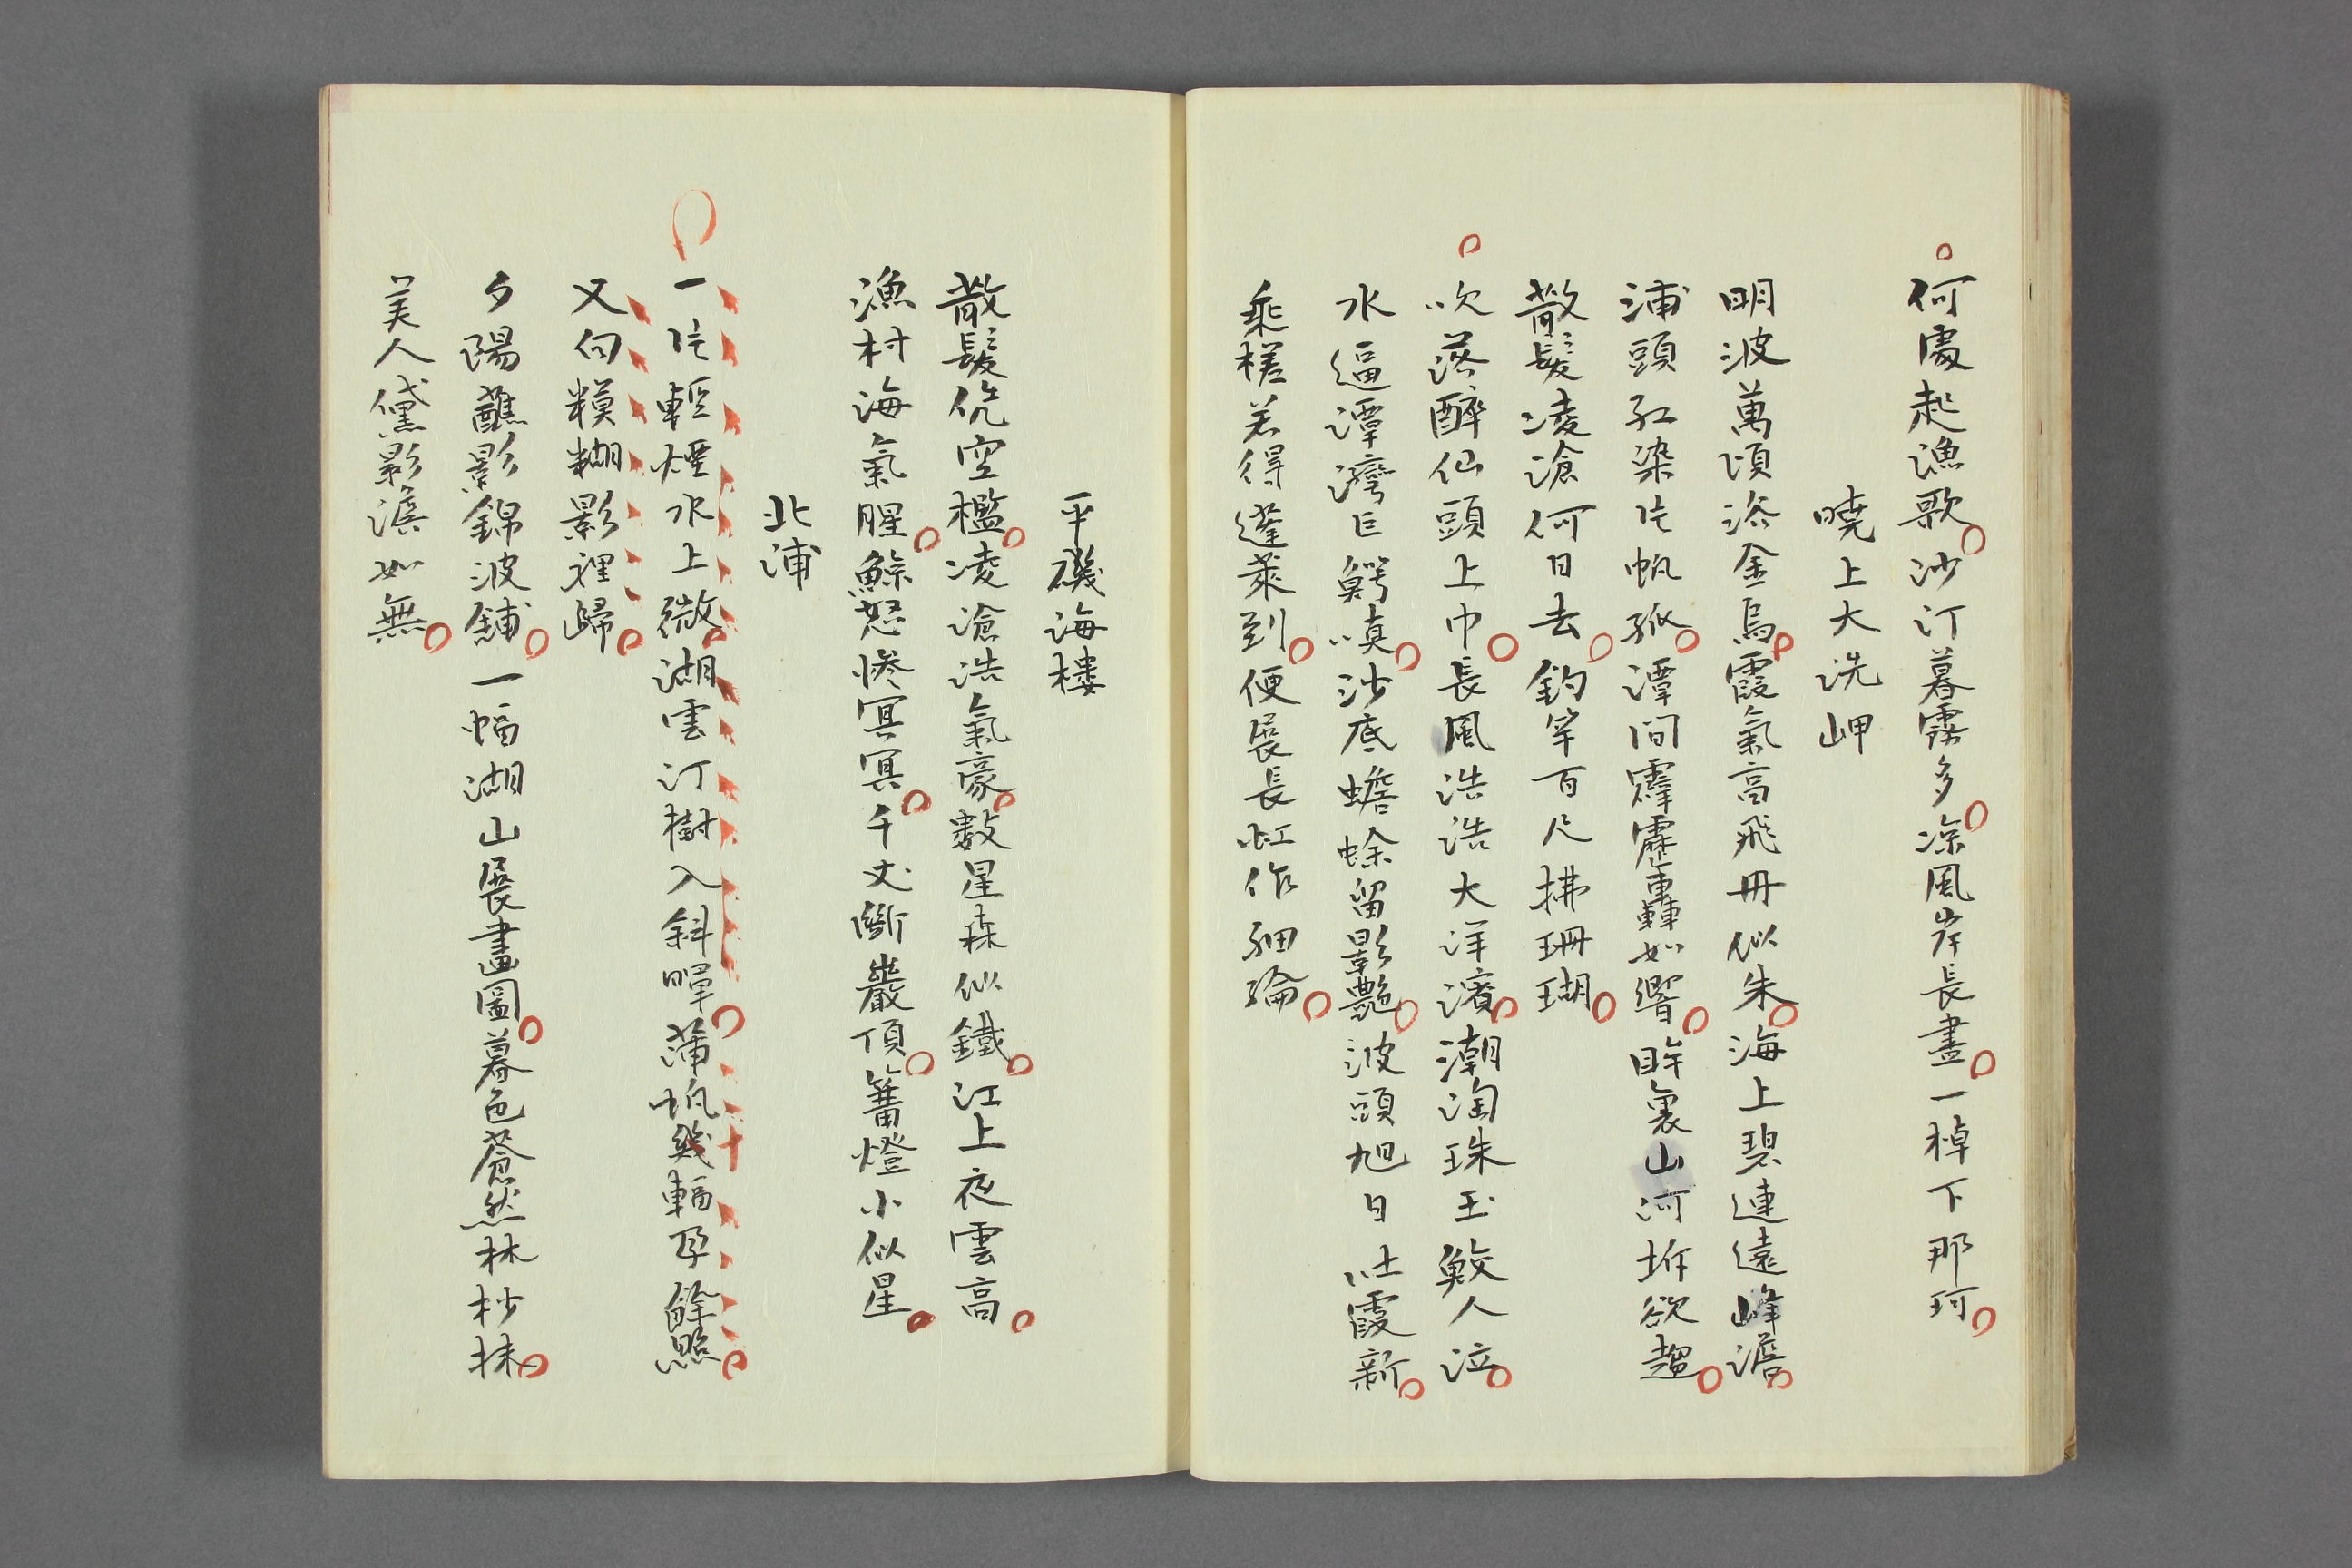 何處起漁歌沙汀暮靄多涼風岸長盡一棹下那珂
曉上大洗岬
明波萬頃浴金烏霞氣高飛冊似朱海上碧連遠峰澹
浦頭紅染片帆孤潭間霹靂轟如響眸裏山河坼欲趨
散髮凌滄何日去釣竿百尺拂珊瑚
吹落醉仙頭上巾長風浩浩大洋濱潮淘珠玉鮫人泣
水逼潭灣巨鰐嗔沙底蟾蜍留影艷波頭旭日吐霞新
乘槎若得蓬萊到便展長虹作細綸
平磯海樓
散髮侊空檻凌滄浩氣豪數星森似鐵江上夜雲高
漁村海氣腥鯨怒慘冥冥千丈斷巖頂篝燈小似星
北浦
一片輕煙水上微湖雲汀樹入斜暉蒲帆幾幅孕餘照
又向糢糊影裡歸
夕陽蘸影錦波鋪一幅湖山展畫圖暮色蒼然林杪抹
美人黛影澹如無